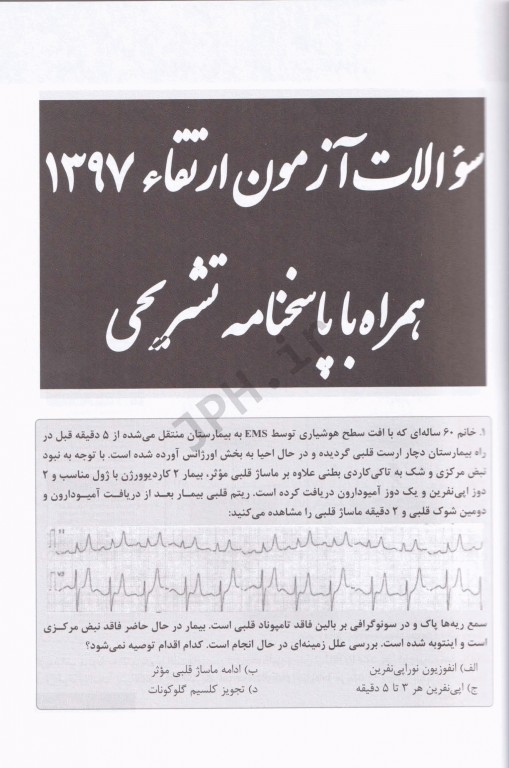 سؤالات آزمون ارتقاء ۱۳۹۷
همراه با پاسخنامه تشریحی
JPH.ir
۱. خانم ۶۰ ساله‌ای که با افت سطح هوشیاری توسط EMS به بیمارستان منتقل می‌شده از ۵ دقیقه قبل در
راه بیمارستان دچار ارست قلبی گردیده و در حال احیا به بخش اورژانس آورده شده است. با توجه به نبود
نبض مرکزی و شک به تاکی‌کاردی بطنی علاوه بر ماساژ قلبی مؤثر، بیمار ۲ کاردیوورژن با ژول مناسب و ۲
دوز اپی‌نفرین و یک دوز آمیودارون دریافت کرده است. ریتم قلبی بیمار بعد از دریافت آمیودارون و
دومین شوک قلبی و ۲ دقیقه ماساژ قلبی را مشاهده می‌کنید:
سمع ریه‌ها پاک و در سونوگرافی بر بالین فاقد تامپوناد قلبی است. بیمار در حال حاضر فاقد نبض مرکزی
است و اینتوبه شده است. بررسی علل زمینه‌ای در حال انجام است. کدام اقدام توصیه نمی‌شود؟
الف) انفوزیون نوراپی‌نفرین ب) ادامه ماساژ قلبی مؤثر
ج) اپی‌نفرین هر ۳ تا ۵ دقیقه د) تجویز کلسیم گلوکونات